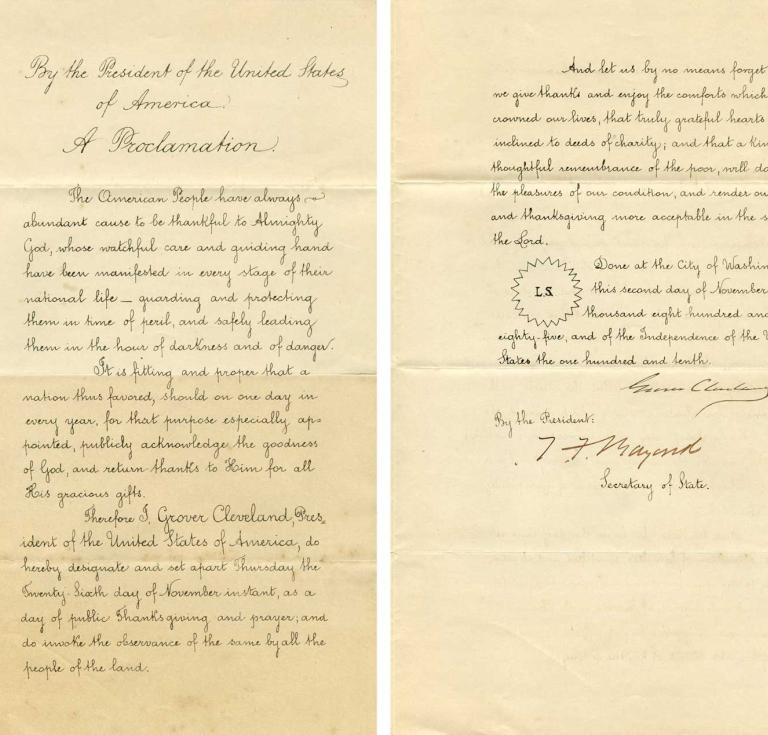 By the President of the United States
of America.
A Proclamation.
The American People have always
abundant cause to be thankful to Almighty
God, whose watchful care and guiding hand
have been manifested in every stage of their
national life — guarding and protecting
them in time of peril, and safely leading
them in the hour of darkness and of danger.
It is fitting and proper that a
nation thus favored, should on one day in
every year, for that purpose especially ap=
pointed, publicly acknowledge the goodness
of God, and return thanks to Him for all
His gracious gifts.
Therefore I, Grover Cleveland, Pres=
ident of the United States of America, do
hereby designate and set apart Thursday the
Twenty-Sixth day of November instant, as a
day of public Thanksgiving and prayer; and
do invoke the observance of the same by all the
people of the land.
And let us by no means forget
we give thanks and enjoy the comforts which
crowned our lives, that truly grateful hearts
inclined to deeds of charity; and that a kin
thoughtful remembrance of the poor, will do
the pleasures of our condition, and render ou
and thanksgiving more acceptable in the s
the Lord.
L.S.
Done at the City of Washin
this second day of November
thousand eight hundred and
eighty-five, and of the Independence of the U
States the one hundred and tenth.
Grover Cleveland
By the President:
T. F. Bayard
Secretary of State.